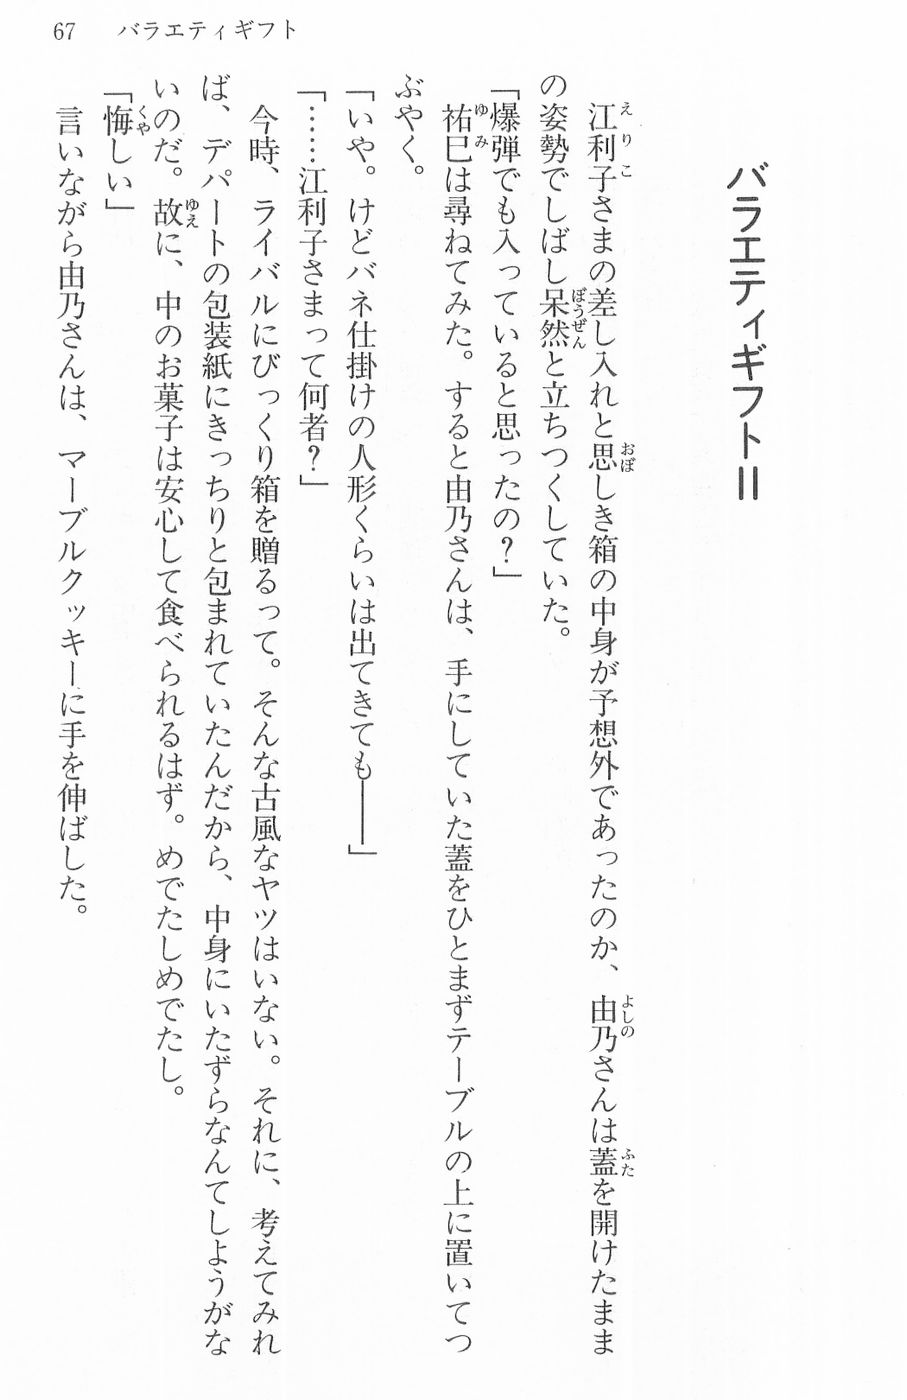 67 バラエティギフト
バラエティギフトⅡ
江利子さまの差し入れと思しき箱の中身が予想外であったのか、由乃さんは蓋を開けたまま
の姿勢でしばし呆然と立ちつくしていた。
「爆弾でも入っていると思ったの？」
祐巳は尋ねてみた。すると由乃さんは、手にしていた蓋をひとまずテーブルの上に置いてつ
ぶやく。
「いや。けどバネ仕掛けの人形くらいは出てきても――」
「……江利子さまって何者？」
今時、ライバルにびっくり箱を贈るって。そんな古風なヤツはいない。それに、考えてみれ
ば、デパートの包装紙にきっちりと包まれていたんだから、中身にいたずらなんてしようがな
いのだ。故に、中のお菓子は安心して食べられるはず。めでたしめでたし。
「悔しい」
言いながら由乃さんは、マーブルクッキーに手を伸ばした。